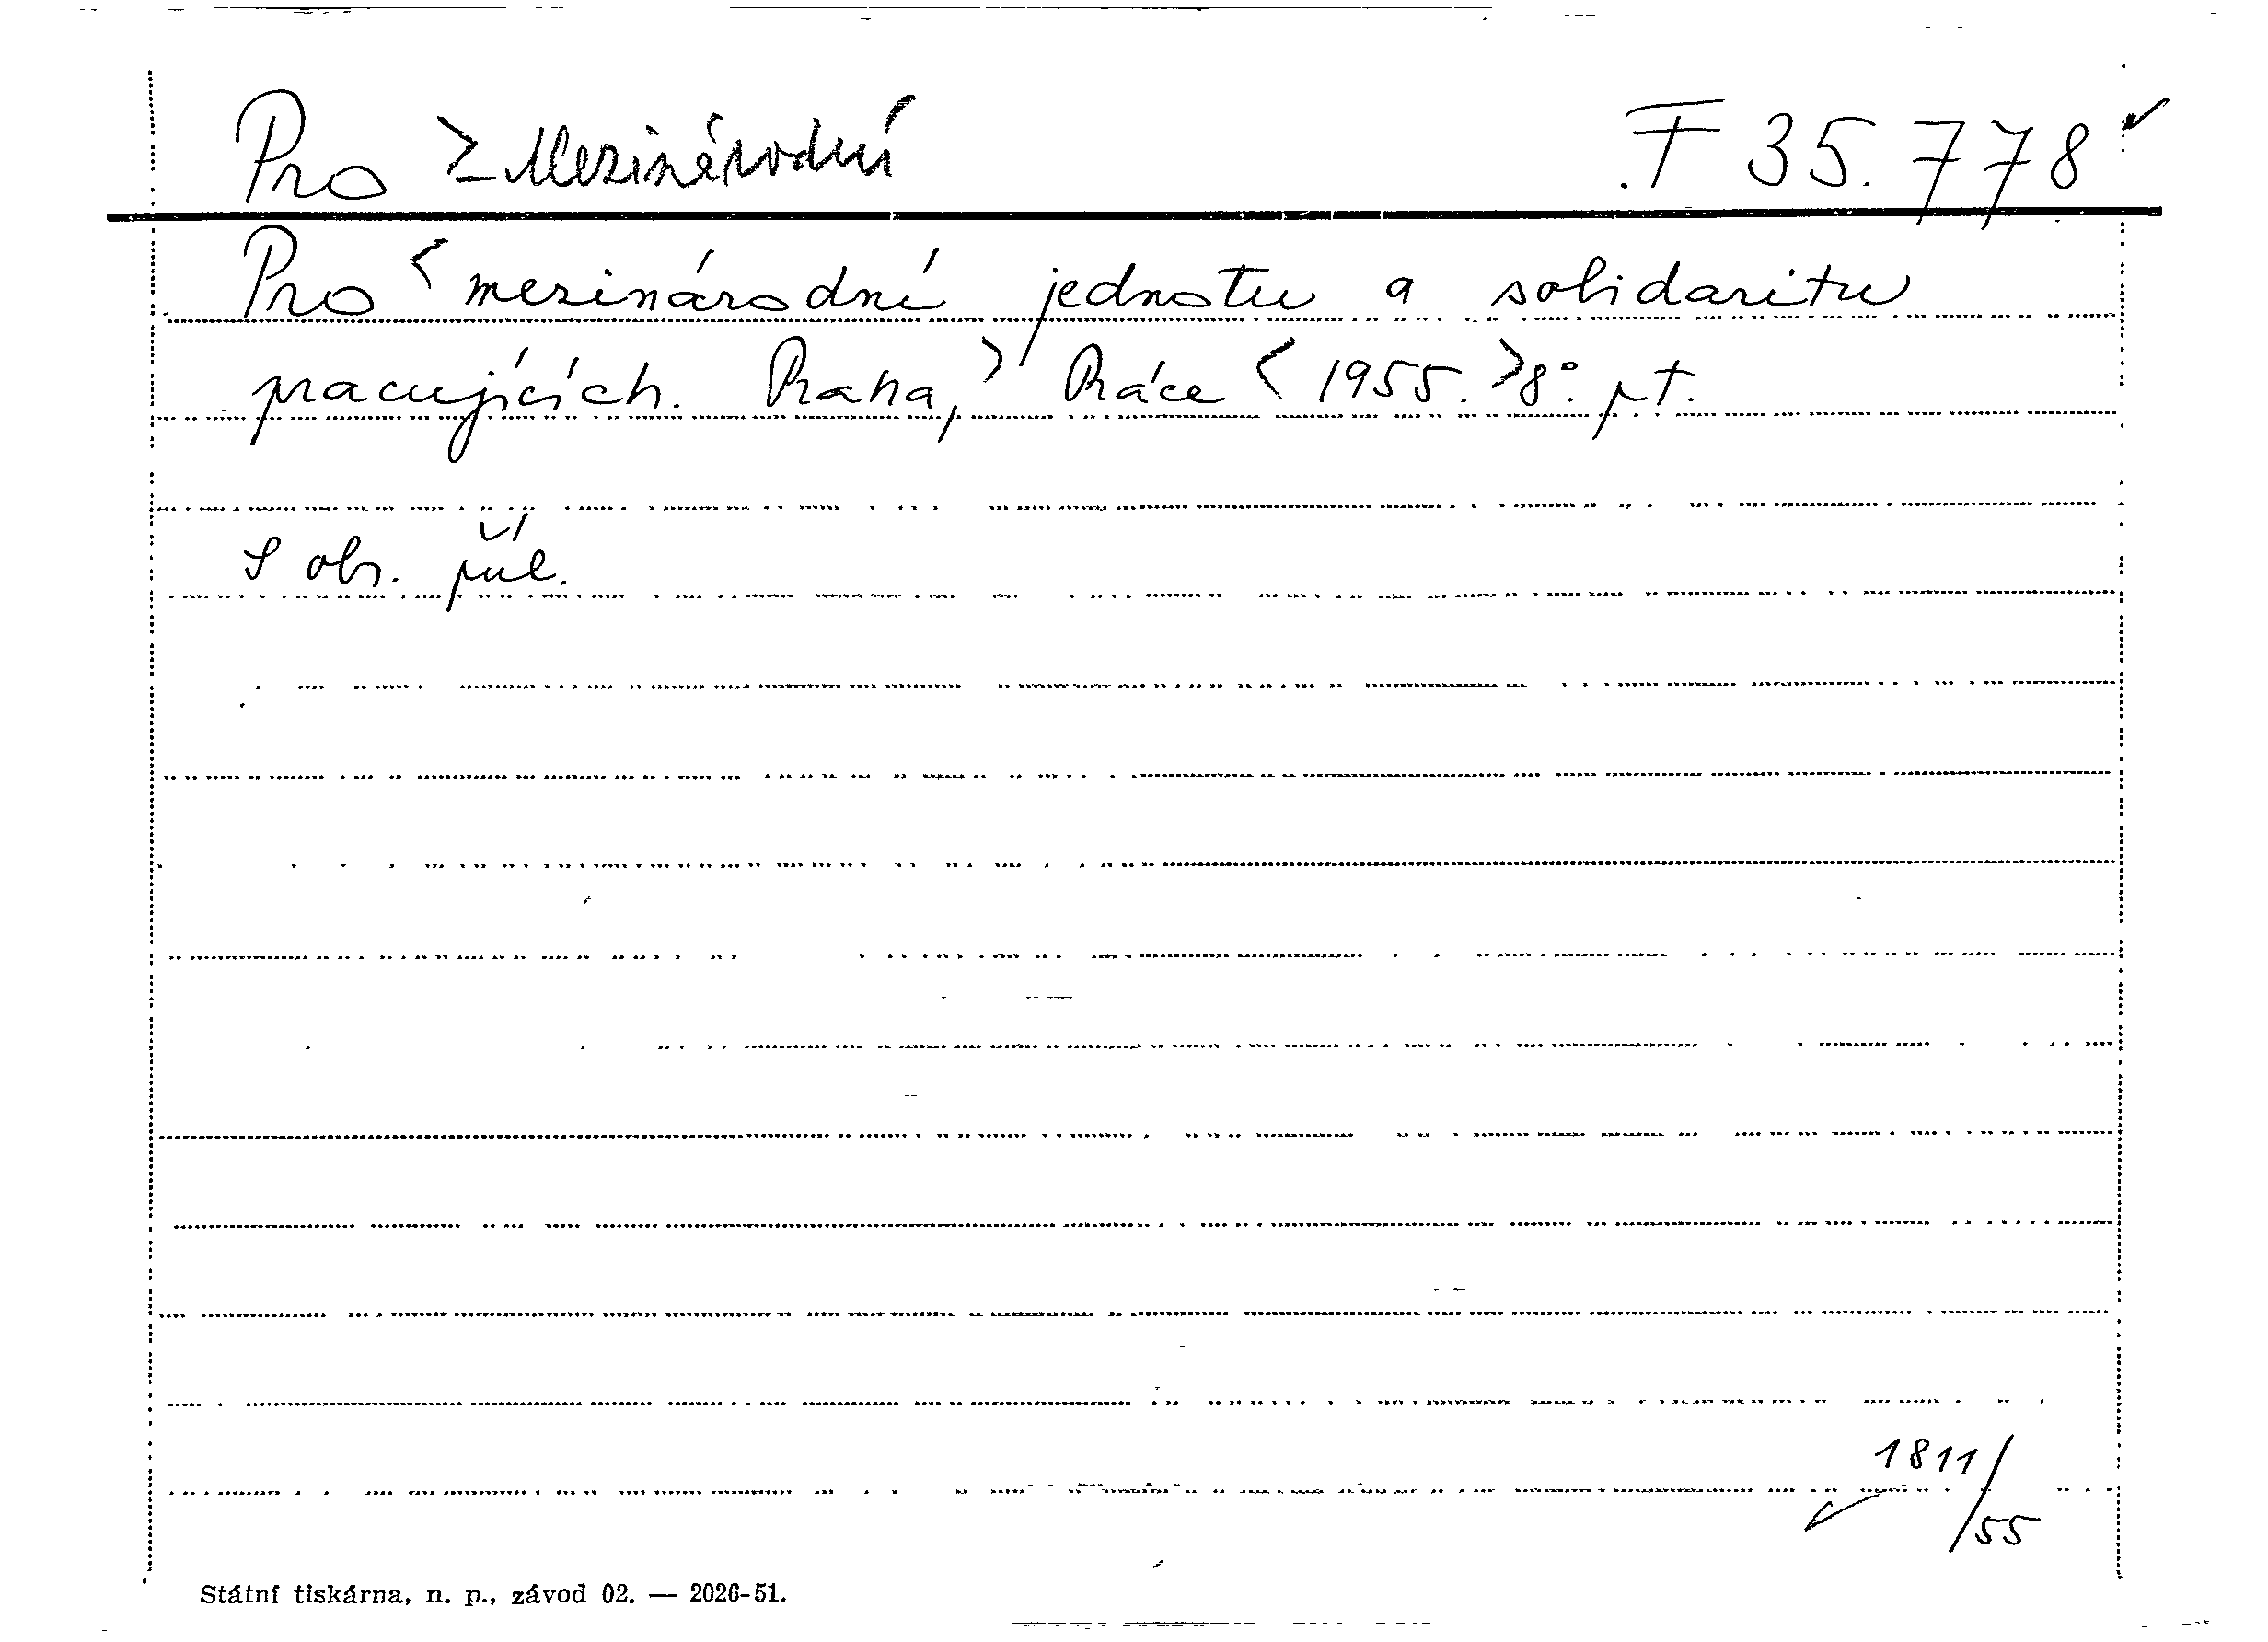 Pro > Mezinárodní F 35.778
Pro < mezinárodní jednotu a solidaritu
pracujících. Praha, > Práce < 1955. > 8°. pt.
S obr. příl.
1811/
55
Státní tiskárna, n. p., závod 02. — 2026-51.